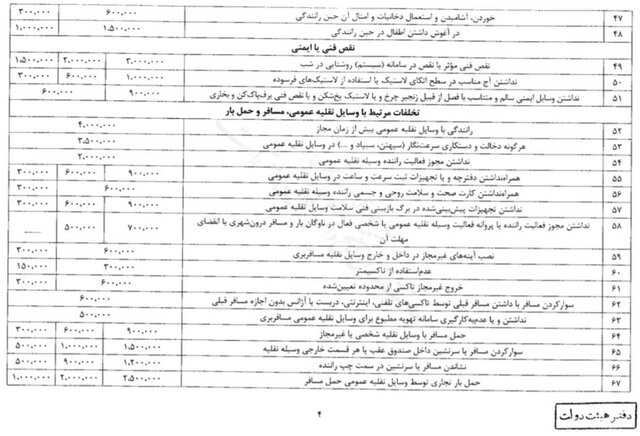 ۴۷ خوردن، آشامیدن و استعمال دخانیات و امثال آن حین رانندگی ۶۰۰.۰۰۰ ۳۰۰.۰۰۰
۴۸ در آغوش داشتن اطفال در حین رانندگی ۱.۵۰۰.۰۰۰ ۱.۰۰۰.۰۰۰
نقص فنی یا ایمنی
۴۹ نقص فنی مؤثر یا نقص در سامانه (سیستم) روشنایی در شب ۳.۰۰۰.۰۰۰ ۲.۰۰۰.۰۰۰ ۱.۵۰۰.۰۰۰
۵۰ نداشتن آج مناسب در سطح اتکای لاستیک یا استفاده از لاستیک‌های فرسوده ۱.۰۰۰.۰۰۰ ۶۰۰.۰۰۰ ۳۰۰.۰۰۰
۵۱ نداشتن وسایل ایمنی سالم و متناسب با فصل از قبیل زنجیر چرخ و یا لاستیک یخ‌شکن و یا نقص فنی برف‌پاک‌کن و بخاری ۹۰۰.۰۰۰ ۶۰۰.۰۰۰
تخلفات مرتبط با وسایل نقلیه عمومی، مسافر و حمل بار
۵۲ رانندگی با وسایل نقلیه عمومی بیش از زمان مجاز ۴.۰۰۰.۰۰۰
۵۳ هرگونه دخالت و دستکاری سرعت‌نگار (سپهتن، سیپاد و ...) در وسایل نقلیه عمومی ۳.۵۰۰.۰۰۰
۵۴ نداشتن مجوز فعالیت راننده وسیله نقلیه عمومی ۲.۰۰۰.۰۰۰
۵۵ همراه‌نداشتن دفترچه و یا تجهیزات ثبت سرعت و ساعت در وسایل نقلیه عمومی ۹۰۰.۰۰۰ ۶۰۰.۰۰۰ ۳۰۰.۰۰۰
۵۶ همراه‌نداشتن کارت صحت و سلامت روحی و جسمی راننده وسیله نقلیه عمومی ۶۰۰.۰۰۰ ۳۰۰.۰۰۰
۵۷ نداشتن تجهیزات پیش‌بینی‌شده در برگ بازبینی فنی سلامت وسایل نقلیه عمومی ۹۰۰.۰۰۰ ۶۰۰.۰۰۰ ۳۰۰.۰۰۰
۵۸ نداشتن مجوز فعالیت راننده یا پروانه فعالیت وسیله نقلیه عمومی یا شخصی فعال در ناوگان بار و مسافر درون‌شهری یا انقضای ۷۰۰.۰۰۰ ۵۰۰.۰۰۰
مهلت آن
۵۹ نصب آینه‌های غیرمجاز در داخل و خارج وسایل نقلیه مسافربری ۶۰۰.۰۰۰ ۳۰۰.۰۰۰
۶۰ عدم‌استفاده از تاکسیمتر ۳۰۰.۰۰۰ ۱۵۰.۰۰۰
۶۱ خروج غیرمجاز تاکسی از محدوده تعیین‌شده ۶۰۰.۰۰۰ ۳۰۰.۰۰۰
۶۲ سوارکردن مسافر با داشتن مسافر قبلی توسط تاکسی‌های تلفنی، اینترنتی، دربست یا آژانس بدون اجازه مسافر قبلی ۶۰۰.۰۰۰
۶۳ نداشتن و یا عدم‌به‌کارگیری سامانه تهویه مطبوع برای وسایل نقلیه عمومی مسافربری ۵۰۰.۰۰۰
۶۴ حمل مسافر با وسایل نقلیه شخصی یا غیرمجاز ۹۰۰.۰۰۰ ۶۰۰.۰۰۰ ۳۰۰.۰۰۰
۶۵ سوارکردن مسافر یا سرنشین داخل صندوق عقب یا هر قسمت خارجی وسیله نقلیه ۱.۵۰۰.۰۰۰ ۱.۰۰۰.۰۰۰ ۵۰۰.۰۰۰
۶۶ نشاندن مسافر یا سرنشین در سمت چپ راننده ۱.۲۰۰.۰۰۰ ۹۰۰.۰۰۰ ۵۰۰.۰۰۰
۶۷ حمل بار تجاری توسط وسایل نقلیه عمومی حمل مسافر ۲.۵۰۰.۰۰۰ ۲.۰۰۰.۰۰۰ ۱.۰۰۰.۰۰۰
۴
دفتر هیئت دولت